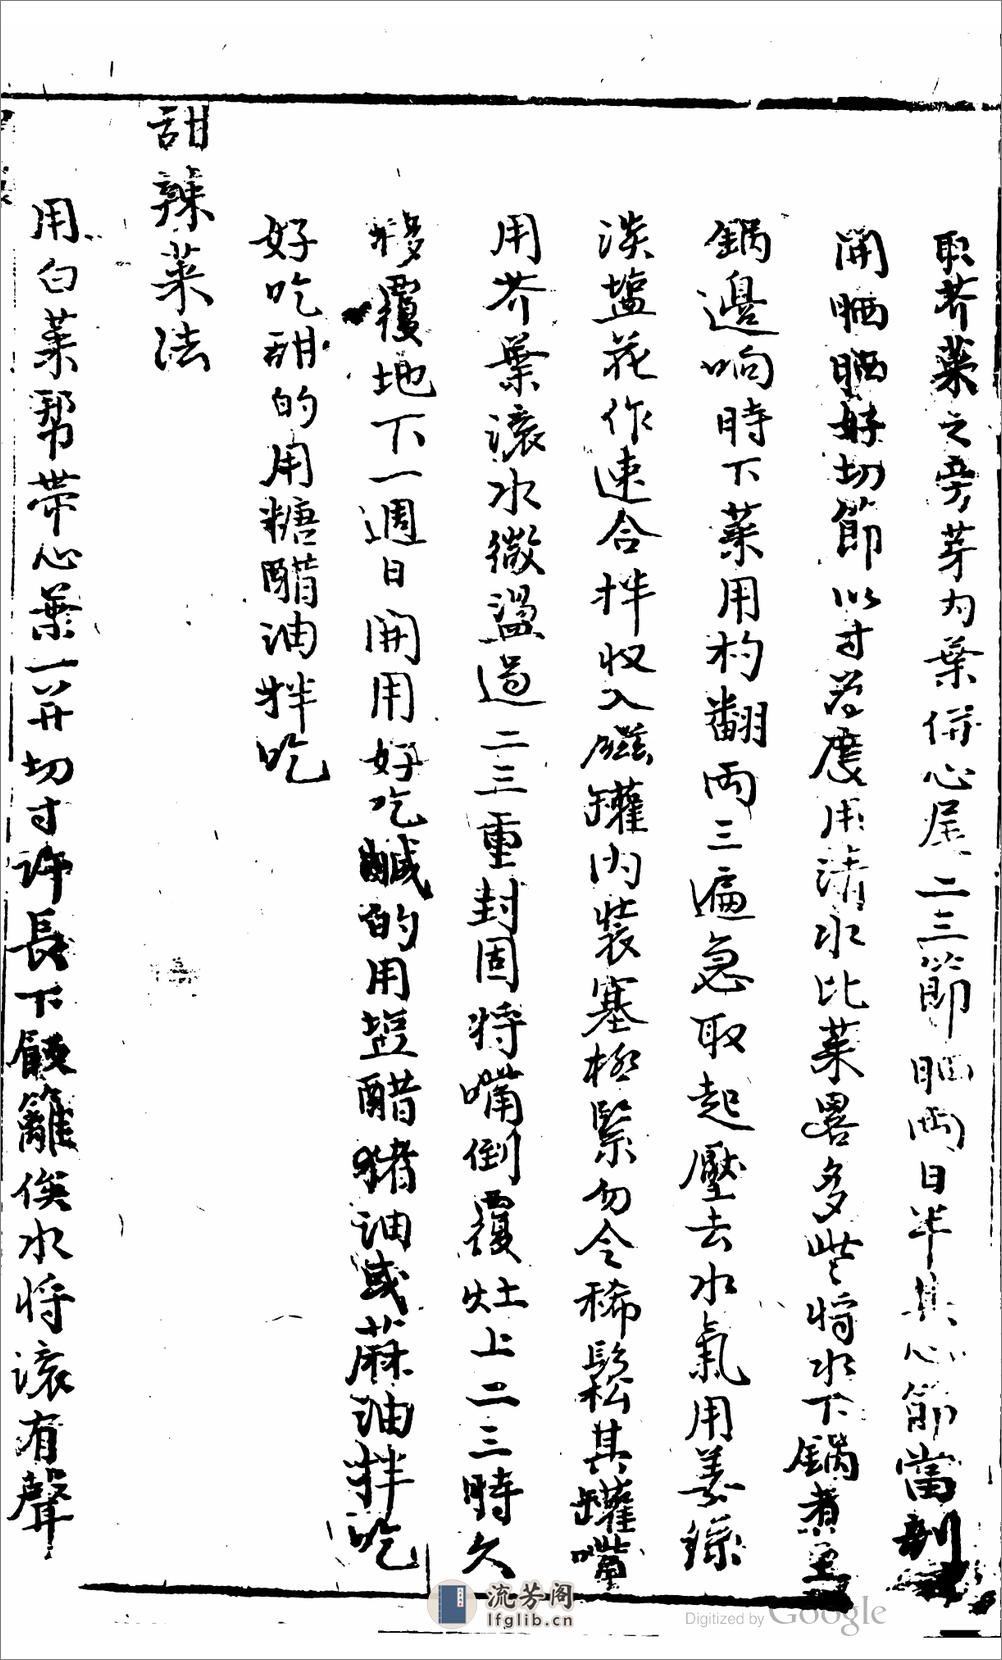 取芥菜之旁芽內葉併心尾二三節晒兩日半其心節當剖
開晒晒好切節以寸為度用清水比菜畧多些將水下鍋煮至
鍋邊响時下菜用杓翻兩三遍急取起壓去水氣用姜絲
淡塩花作速合拌收入磁罐內裝塞極緊勿令稀鬆其罐嘴
用芥葉滾水微盪過二三重封固將嘴倒覆灶上二三時久
移覆地下一週日開用好吃鹹的用塩醋猪油或蔴油拌吃
好吃甜的用糖醋油拌吃
甜辣菜法
用白菜帮帶心葉一并切寸許長下飯籬俟水將滾有聲
流芳阁
lfglib.cn
Digitized by Google